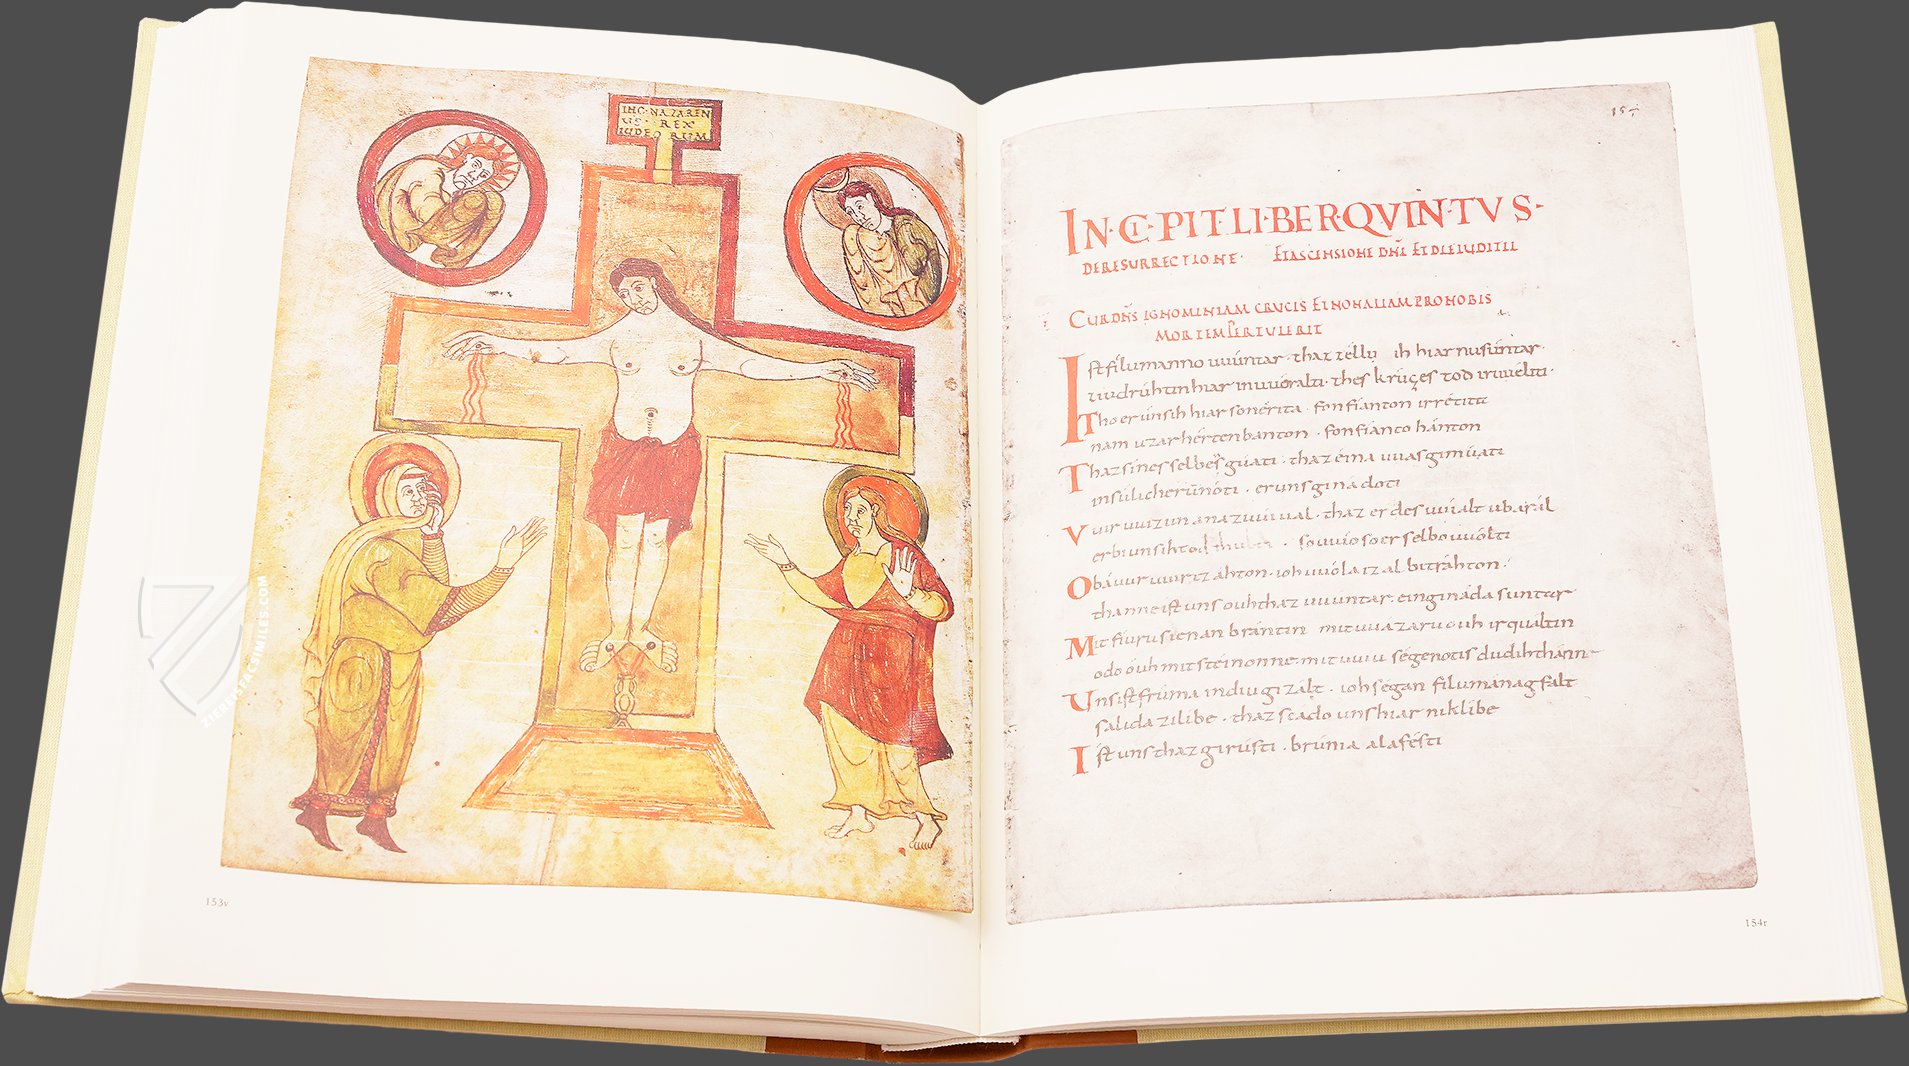 IHC · NAZAREN
US · REX
IUDEO RUM
153v
ZIEREIS FACSIMILES.COM
IN·CI·PIT·LI·BER·QVIN·TVS·
DE RESURRECTIONE · ET ASCENSIONE DNI ET DIE IUDITII
CUR DNS IGNOMINIAM CRUCIS ET NON ALIAM PRO NOBIS
MORTEM PERTULERIT
Ist filu manno uuúntar · thaz zéllu ih hiar nu súntar ·
ziu drúhtin hiar in uuórolti · thes krúces tod iruuélti ·
Tho er únsih hiar so nérita · fon fíanton irrétita
nam uzar hérten banton · fon fíanto hánton
Thaz sines selbes gúati · thaz éina uuas gimúati
in súlicheru nóti · er uns ginadoti
Vuir uuizun ana zuiual · thaz er des uuialt ubarál
er bi unsih tod thulti · so uuio so er selbo uuólti
Obá uuir uuirz áhton · ioh uuóla iz al bitráhton ·
thanne ist uns ouh thaz uuuntar · ein gináda suntar
Mit fiuru sie nan brántin mit uuazaru ouh irqualtin
odo óuh mit stéinonne · mit uuiu ségenotis du dih thánne
Uns ist frúma in diu gizalt · ioh ségan filu managfalt
salida zi libe · thaz scado uns hiar ni klibe
Ist uns thaz girústi · brúnia alafésti
154r